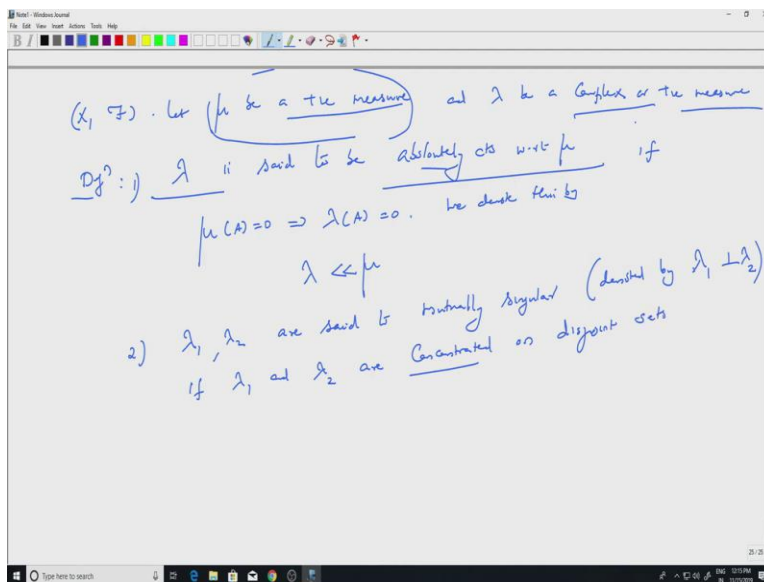 Note1 - Windows Journal
File Edit View Insert Actions Tools Help
B I
(X, F). Let μ be a +ve measure and λ be a Complex or +ve measure
Defⁿ: 1) λ is said to be absolutely cts w.r.t μ if
μ(A)=0 => λ(A)=0. We denote this by
λ << μ
2) λ₁, λ₂ are said to mutually singular (denoted by λ₁ ⊥ λ₂)
if λ₁ and λ₂ are Concentrated on disjoint sets
25/25
Type here to search
ENG 12:15 PM
IN 11/25/2019